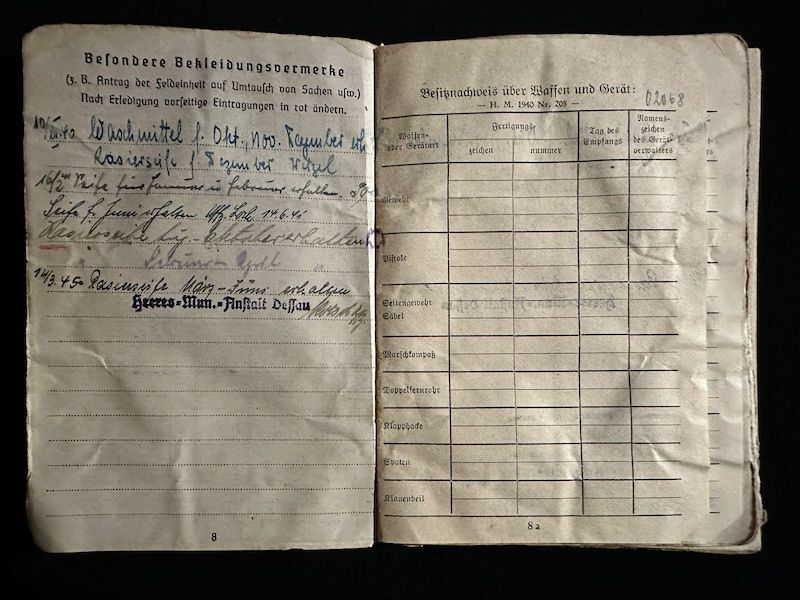 Besondere Bekleidungsvermerke
(z. B. Antrag der Feldeinheit auf Umtausch von Sachen usw.)
Nach Erledigung vorseitige Eintragungen in rot ändern.
Waschmittel f. Okt., Nov. Dezember
Rasierseife f. Dezember
Seife für Januar u Februar erhalten.
Seife f. Juni erhalten 14.6.41
Rasierseife Aug. - Oktober erhalten
14/3.45 Rasierseife März - Juni erhalten
Heeres-Mun.-Anstalt Dessau
8
Besitznachweis über Waffen und Gerät:
02068
— H. M. 1940 Nr. 205 —
Waffen- oder Gerätart
Fertigungs-
zeichen
nummer
Tag des Empfangs
Namens- zeichen des Gerät- verwalters
Gewehr
Pistole
Seitengewehr
Säbel
Marschkompaß
Doppelfernrohr
Klapphacke
Spaten
Klauenbeil
8a